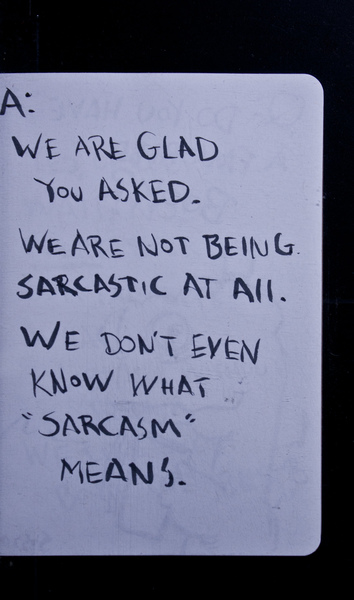 A:
WE ARE GLAD
YOU ASKED.
WE ARE NOT BEING
SARCASTIC AT All.
WE DON'T EVEN
KNOW WHAT
"SARCASM"
MEANS.